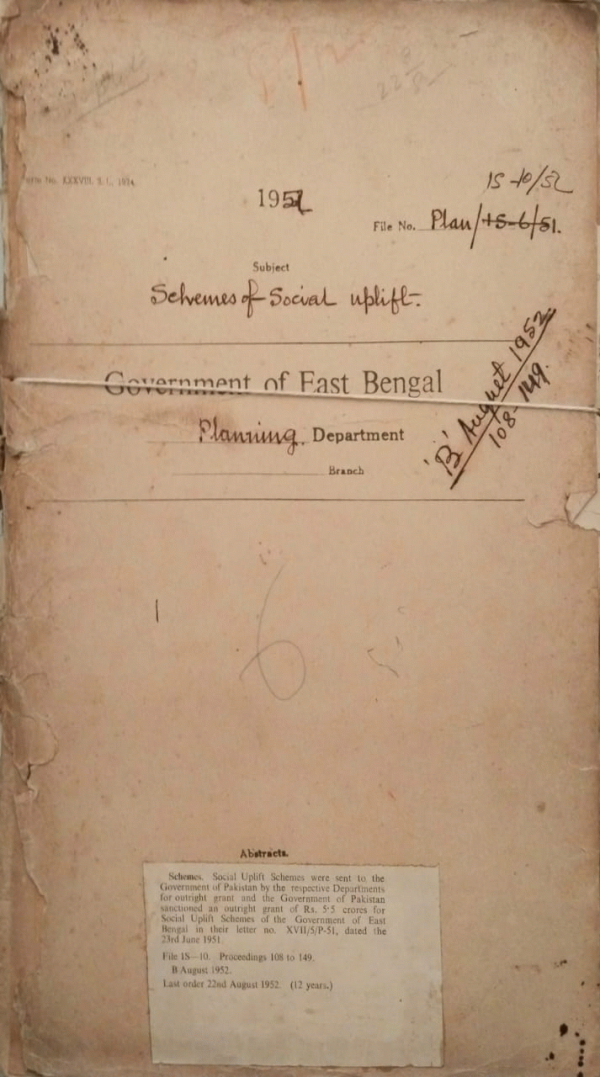 No. XXXVIII. S.I., 1934.
1952
15-10/52
File No. Plan/15-6/51.
Subject
Schemes of Social uplift.
Government of East Bengal
Planning Department
Branch
'B' August 1952
108-149.
6
Abstracts.
Schemes. Social Uplift Schemes were sent to the
Government of Pakistan by the respective Departments
for outright grant and the Government of Pakistan
sanctioned an outright grant of Rs. 5·5 crores for
Social Uplift Schemes of the Government of East
Bengal in their letter no. XVII/5/P-51, dated the
23rd June 1951.
File 1S—10. Proceedings 108 to 149.
B August 1952.
Last order 22nd August 1952. (12 years.)